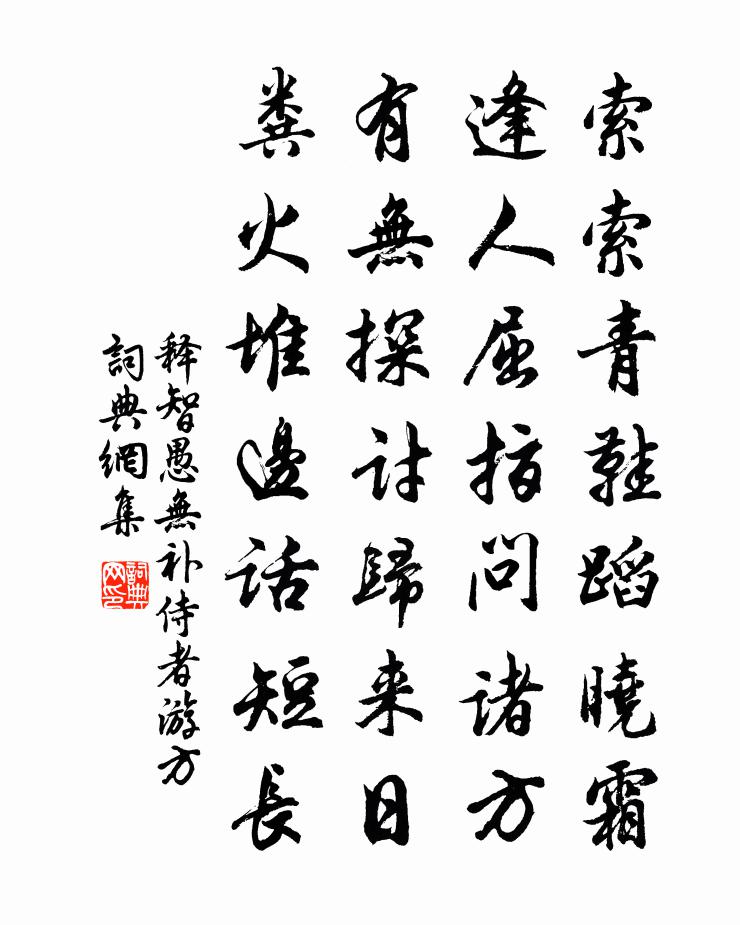 索索青鞋蹈曉霜
逢人屈指問諸方
有無探討歸来日
糞火堆邊話短長
释智愚無补侍者游方
詞典網集
詞典网印